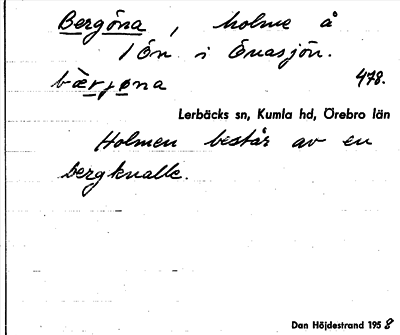 Bergöna, holme å
1 Ön i Önasjön.
bæ̀rjøna 478.
Lerbäcks sn, Kumla hd, Örebro län
Holmen består av en
bergknalle.
Dan Höjdestrand 1958